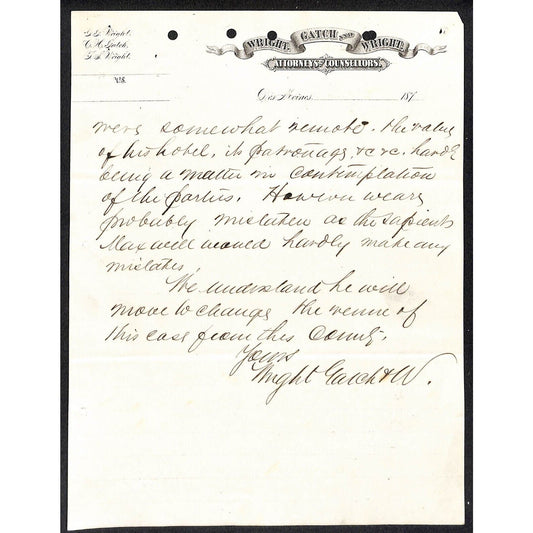 G. G. Wright.
C. H. Gatch.
T. S. Wright.
WRIGHT, GATCH AND WRIGHT,
ATTORNEYS AND COUNSELLORS.
Des Moines 187
were somewhat remote. the value
of his hotel, its patronage &c &c. hardly
being a matter in contemplation
of the parties. However we are
probably mistaken as the sapient
Maxwell would hardly make any
mistakes.
We understand he will
move to change the venue of
this case from this County.
Yours
Wright Gatch & W.